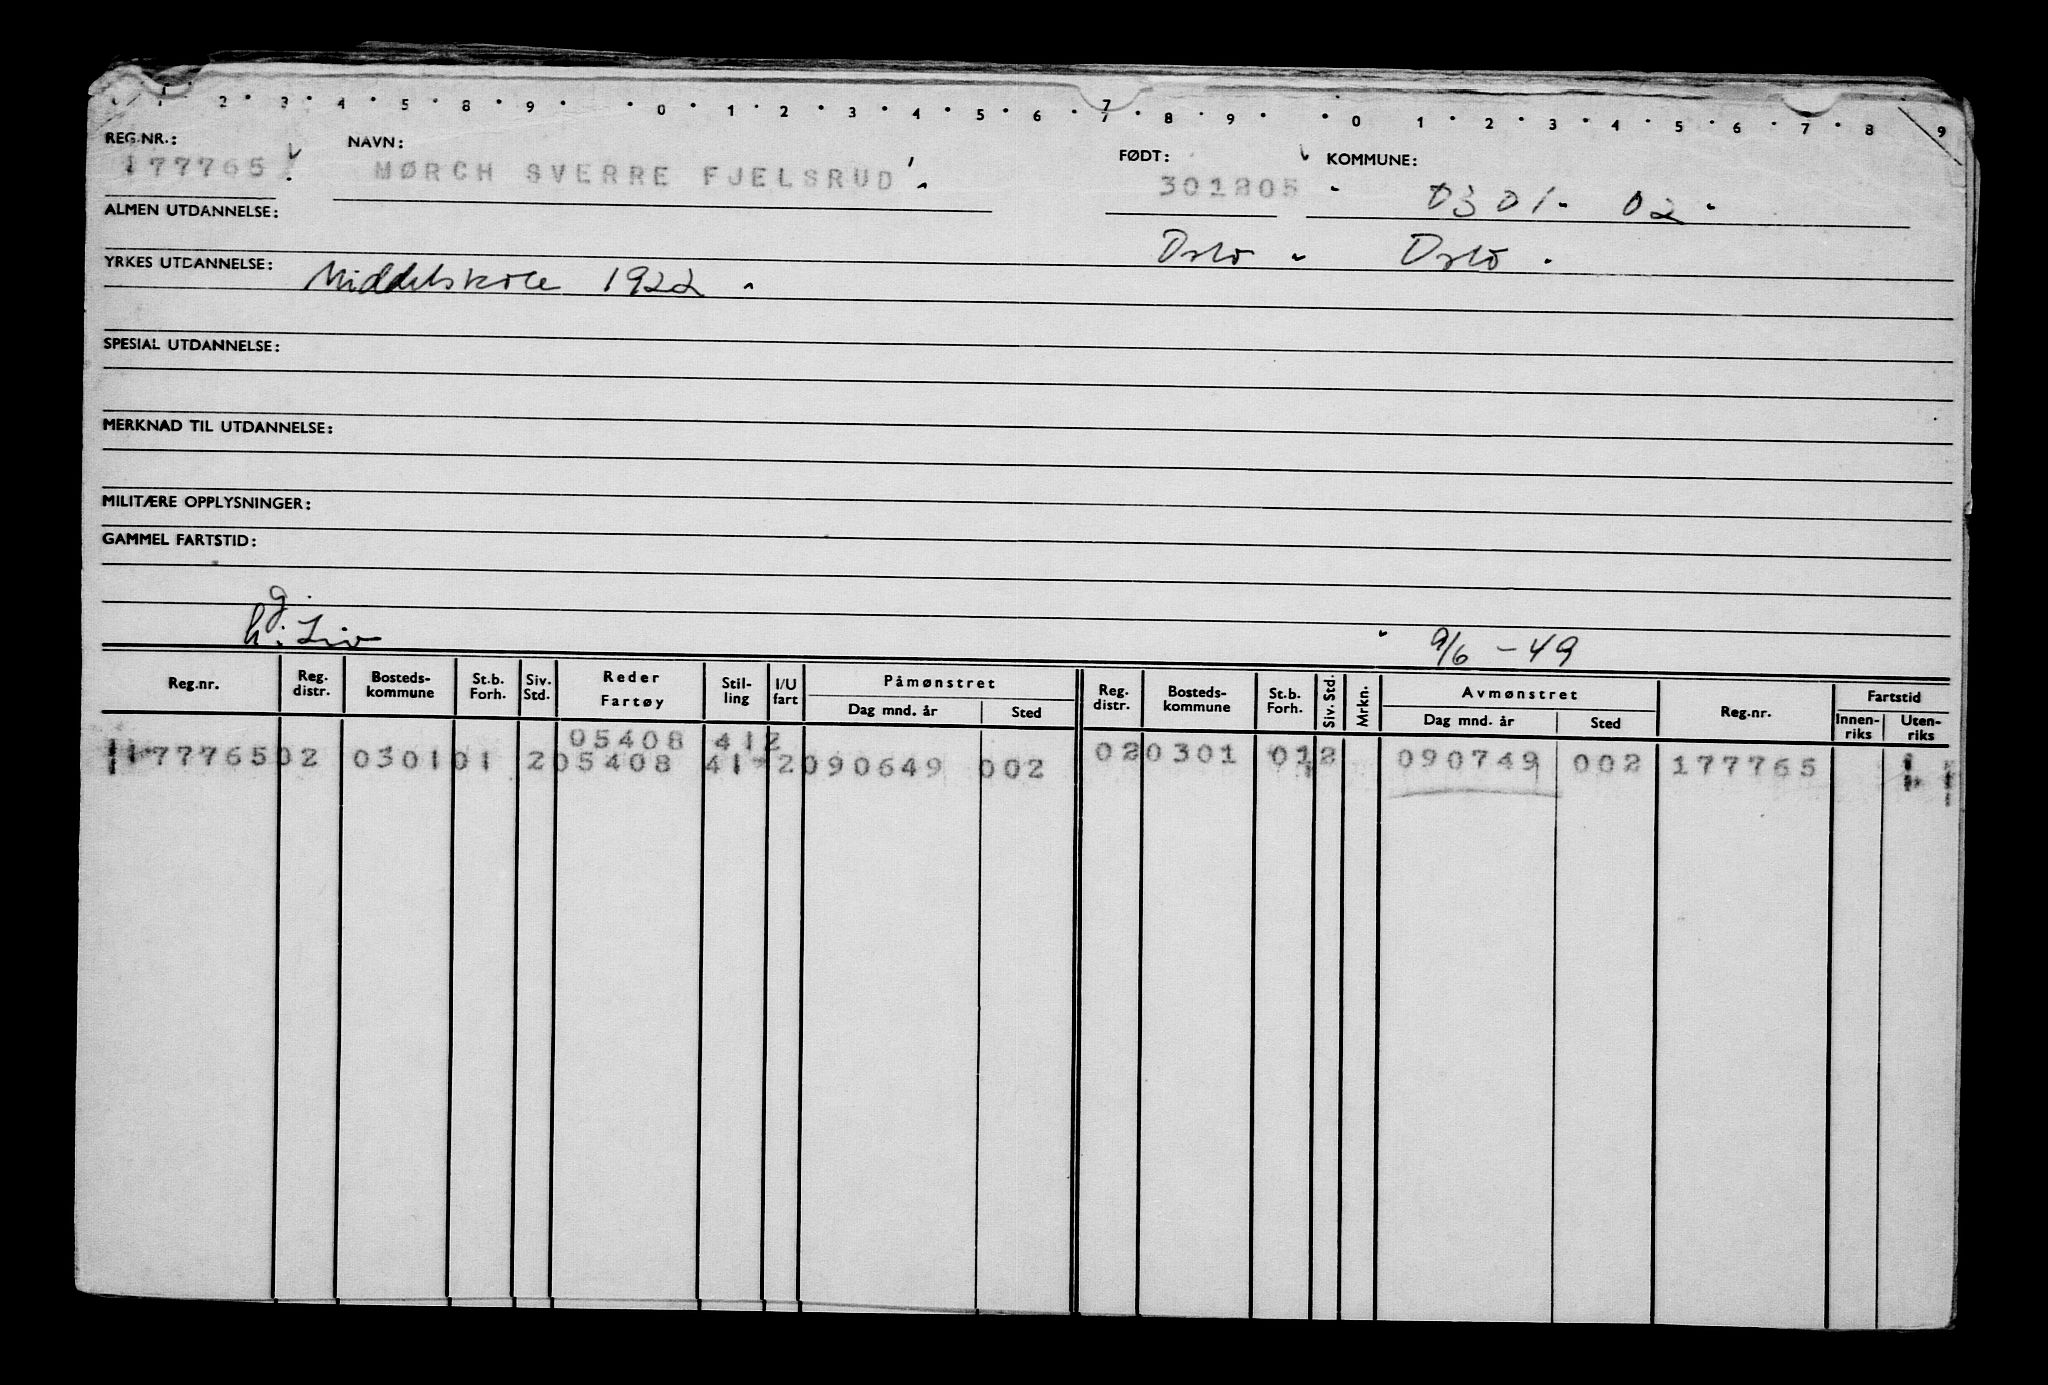 1 2 3 4 5 8 9 0 1 2 3 4 5 6 7 8 9 0 1 2 3 4 5 6 7 8 9
REG.NR.: NAVN: FØDT: KOMMUNE:
177765 MØRCH SVERRE FJELSRUD 301205 0301 - 02
ALMEN UTDANNELSE: Oslo Oslo
YRKES UTDANNELSE: Middelskole 1922
SPESIAL UTDANNELSE:
MERKNAD TIL UTDANNELSE:
MILITÆRE OPPLYSNINGER:
GAMMEL FARTSTID:
g.
h: Liv 9/6 - 49
Reg.nr. Reg. distr. Bosteds-kommune St.b. Forh. Siv. Std. Reder Fartøy Stil-ling I/U fart Påmønstret Dag mnd. år Sted Reg. distr. Bosteds-kommune St.b. Forh. Siv. Std. Mrkn. Avmønstret Dag mnd. år Sted Reg.nr. Fartstid Innen-riks Uten-riks
05408 412
177765 02 0301 01 2 05408 41 2 090649 002 02 0301 01 2 090749 002 177765 1